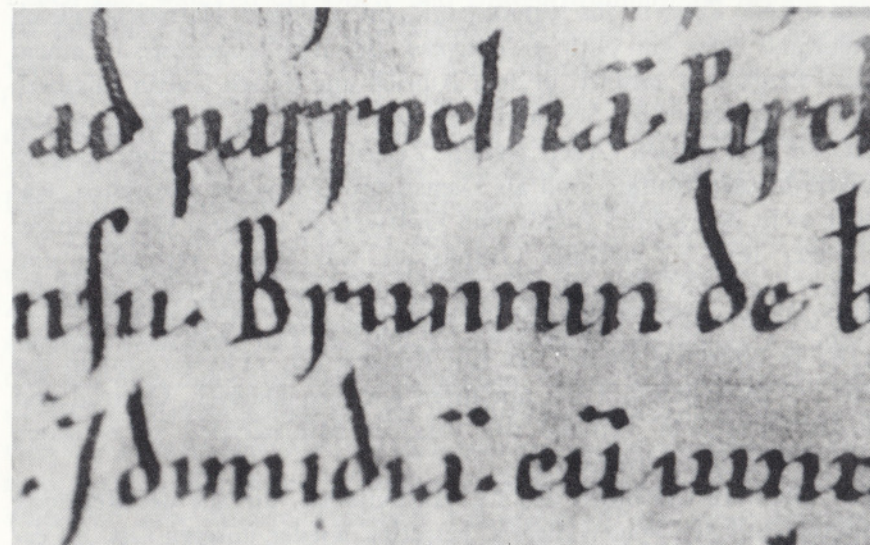 ad parrochiā. Pyrch
nsu. Brunnin de b
. ⁊ dimidiā. cū uin